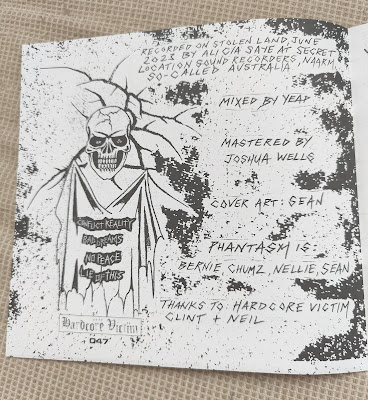 RECORDED ON STOLEN LAND, JUNE
2023 BY ALICIA SAYE AT SECRET
LOCATION SOUND RECORDERS, NAARM
SO-CALLED AUSTRALIA
MIXED BY YEAP
MASTERED BY
JOSHUA WELLS
COVER ART: SEAN
PHANTASM IS:
BERNIE, CHUMZ, NELLIE, SEAN
THANKS TO: HARDCORE VICTIM
CLINT + NEIL
CONFLICT REALITY
BAD DREAMS
NO PEACE
LIFE THIS
Hardcore Victim
047